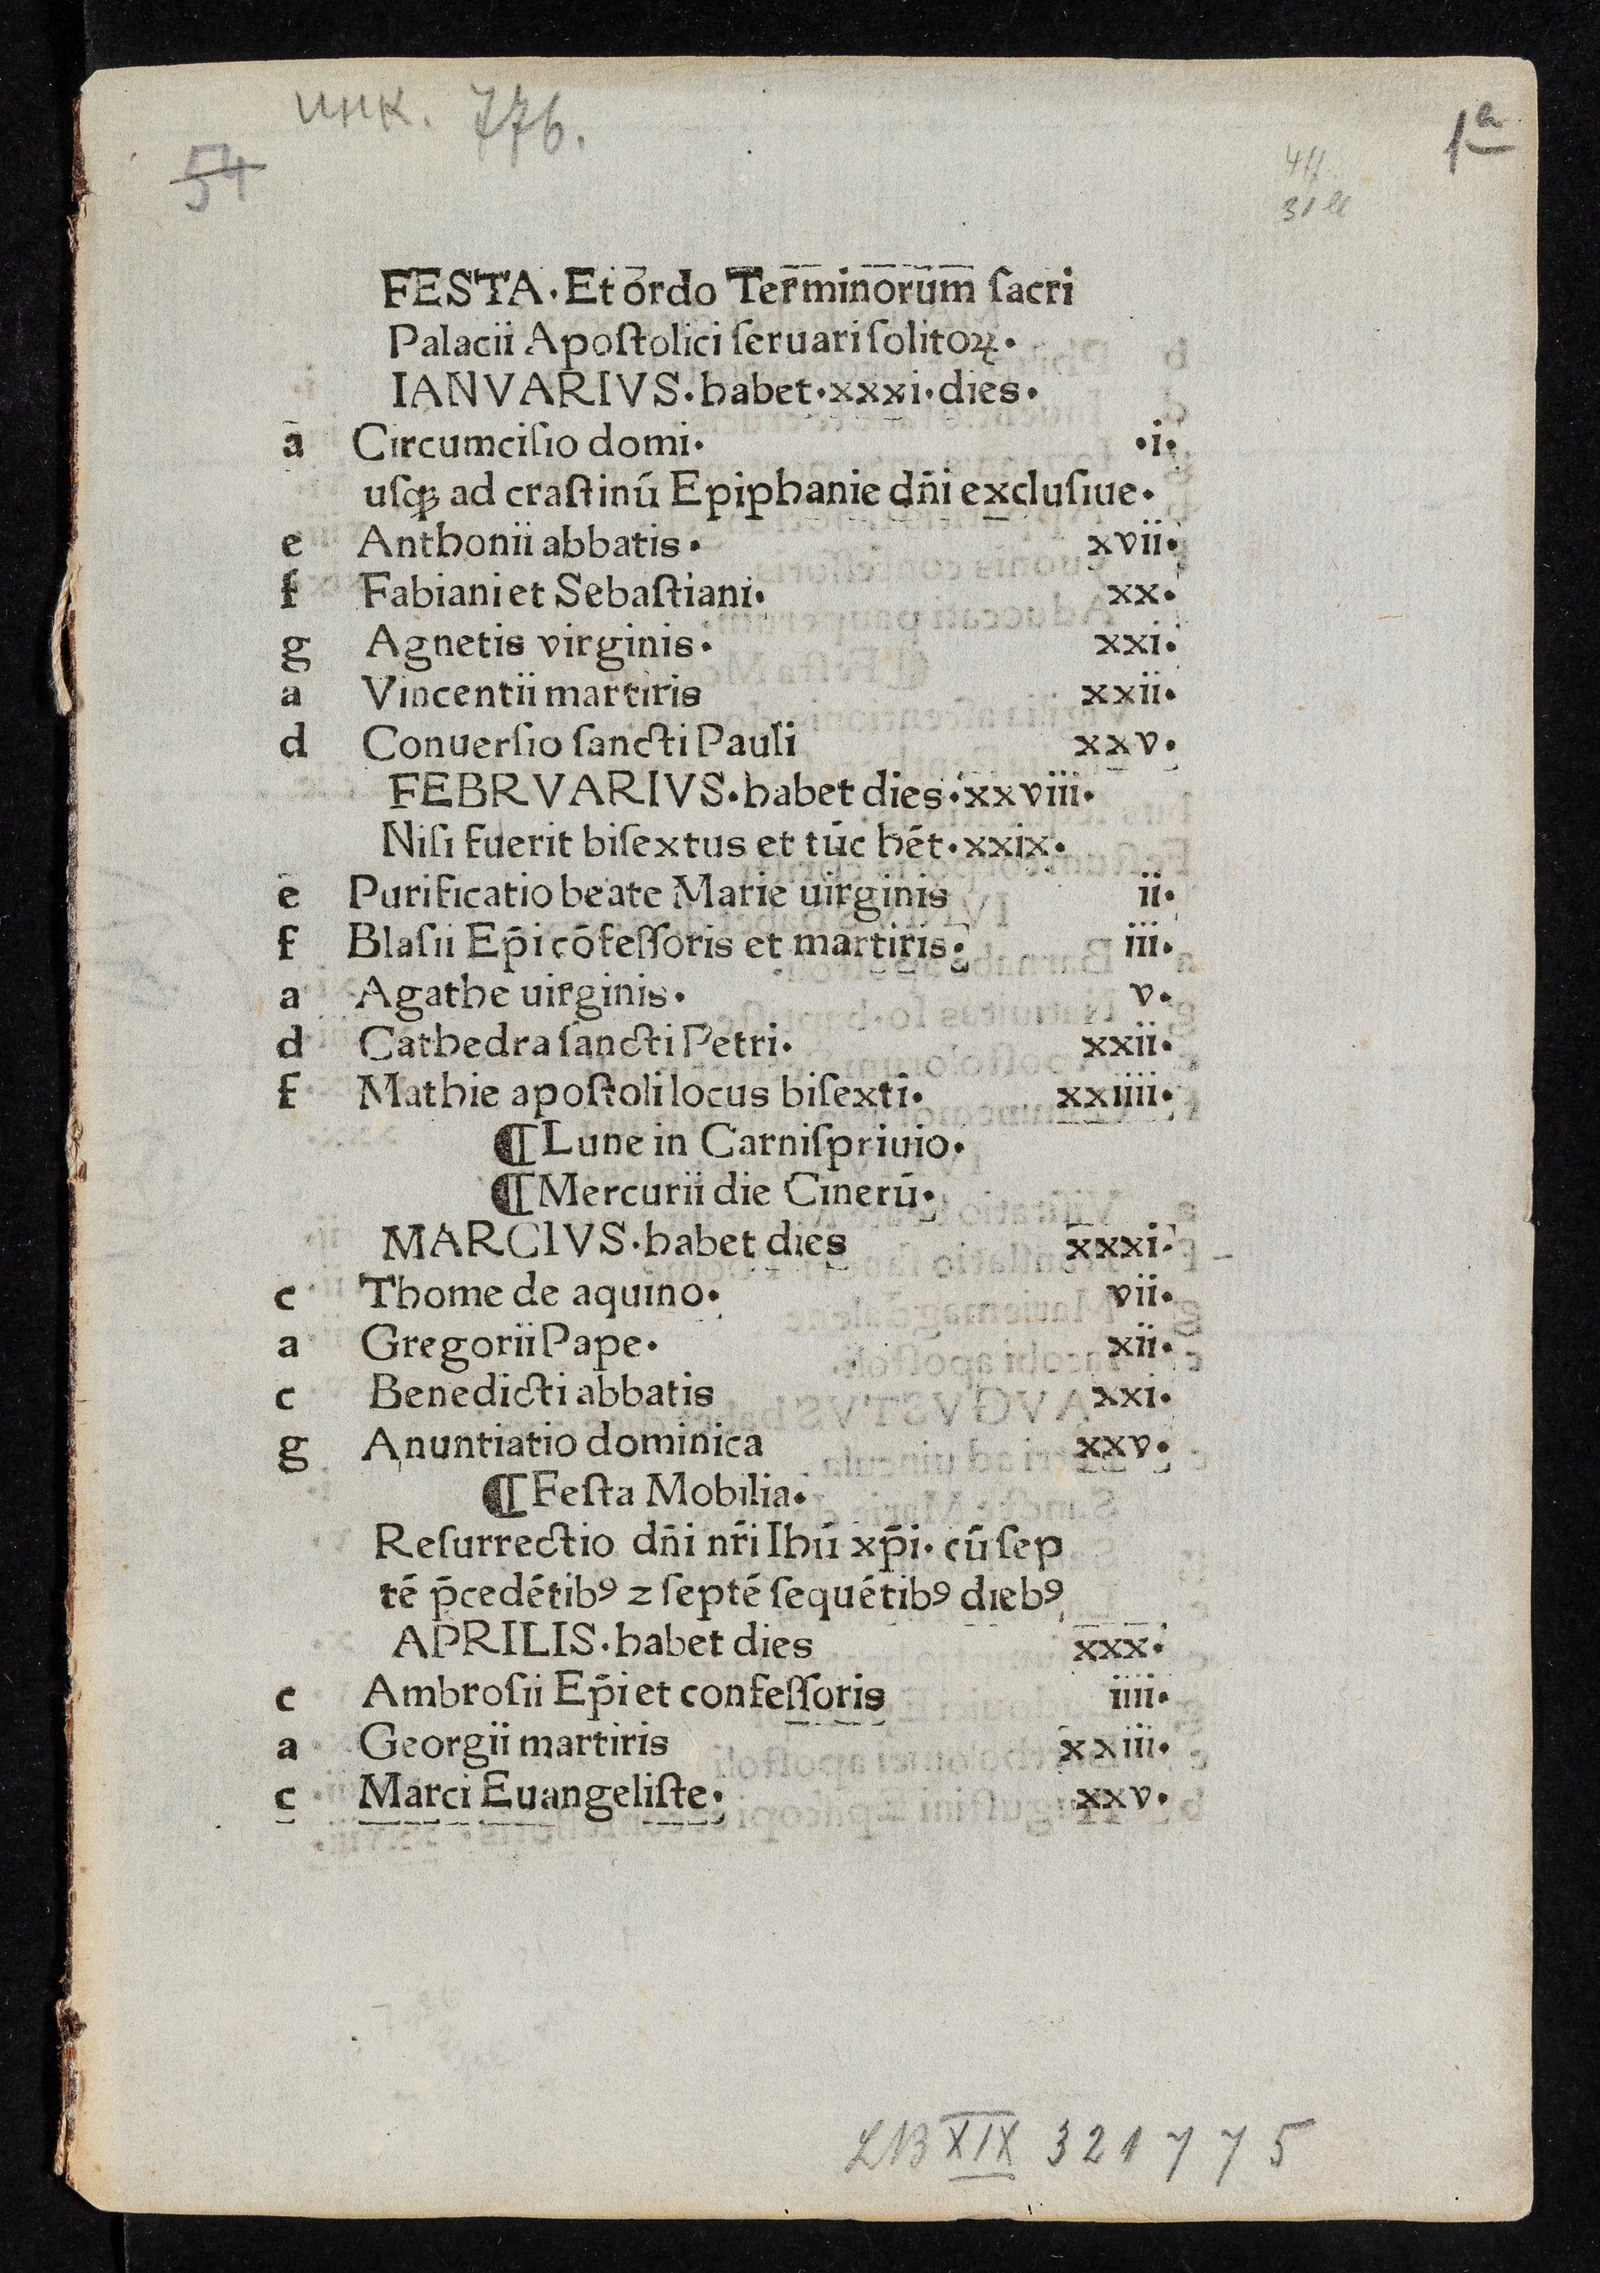 инк. 776.
1a
54
4ff.
31 ll
FESTA·Et ordo Terminorum ſacri
Palacii Apoſtolici ſeruari ſolitoꝝ·
IANVARIVS·habet·xxxi·dies·
a Circumciſio domi· ·i·
uſqꝫ ad craſtinū Epiphanie dn̄i excluſiue·
e Anthonii abbatis· xvii·
f Fabiani et Sebaſtiani· xx·
g Agnetis virginis· xxi·
a Vincentii martiris xxii·
d Conuerſio ſancti Pauli xxv·
FEBRVARIVS·habet dies·xxviii·
Niſi fuerit biſextus et tūc hēt·xxix·
e Purificatio beate Marie uirginis ii·
f Blaſii Ep̄i cōfeſſoris et martiris· iii·
a Agathe uirginis· v·
d Cathedra ſancti Petri· xxii·
f Mathie apoſtoli locus biſexti· xxiiii·
¶Lune in Carniſpriuio·
¶Mercurii die Cinerū·
MARCIVS·habet dies xxxi·
c Thome de aquino· vii·
a Gregorii Pape· xii·
c Benedicti abbatis xxi·
g Anuntiatio dominica xxv·
¶Feſta Mobilia·
Reſurrectio dn̄i nr̄i Ihū xp̄i· cū ſep
tē p̄cedētibꝰ ⁊ ſeptē ſequētibꝰ diebꝰ
APRILIS·habet dies xxx·
c Ambroſii Ep̄i et confeſſoris iiii·
a Georgii martiris xxiii·
c Marci Euangeliſte· xxv·
LB XIX 321775